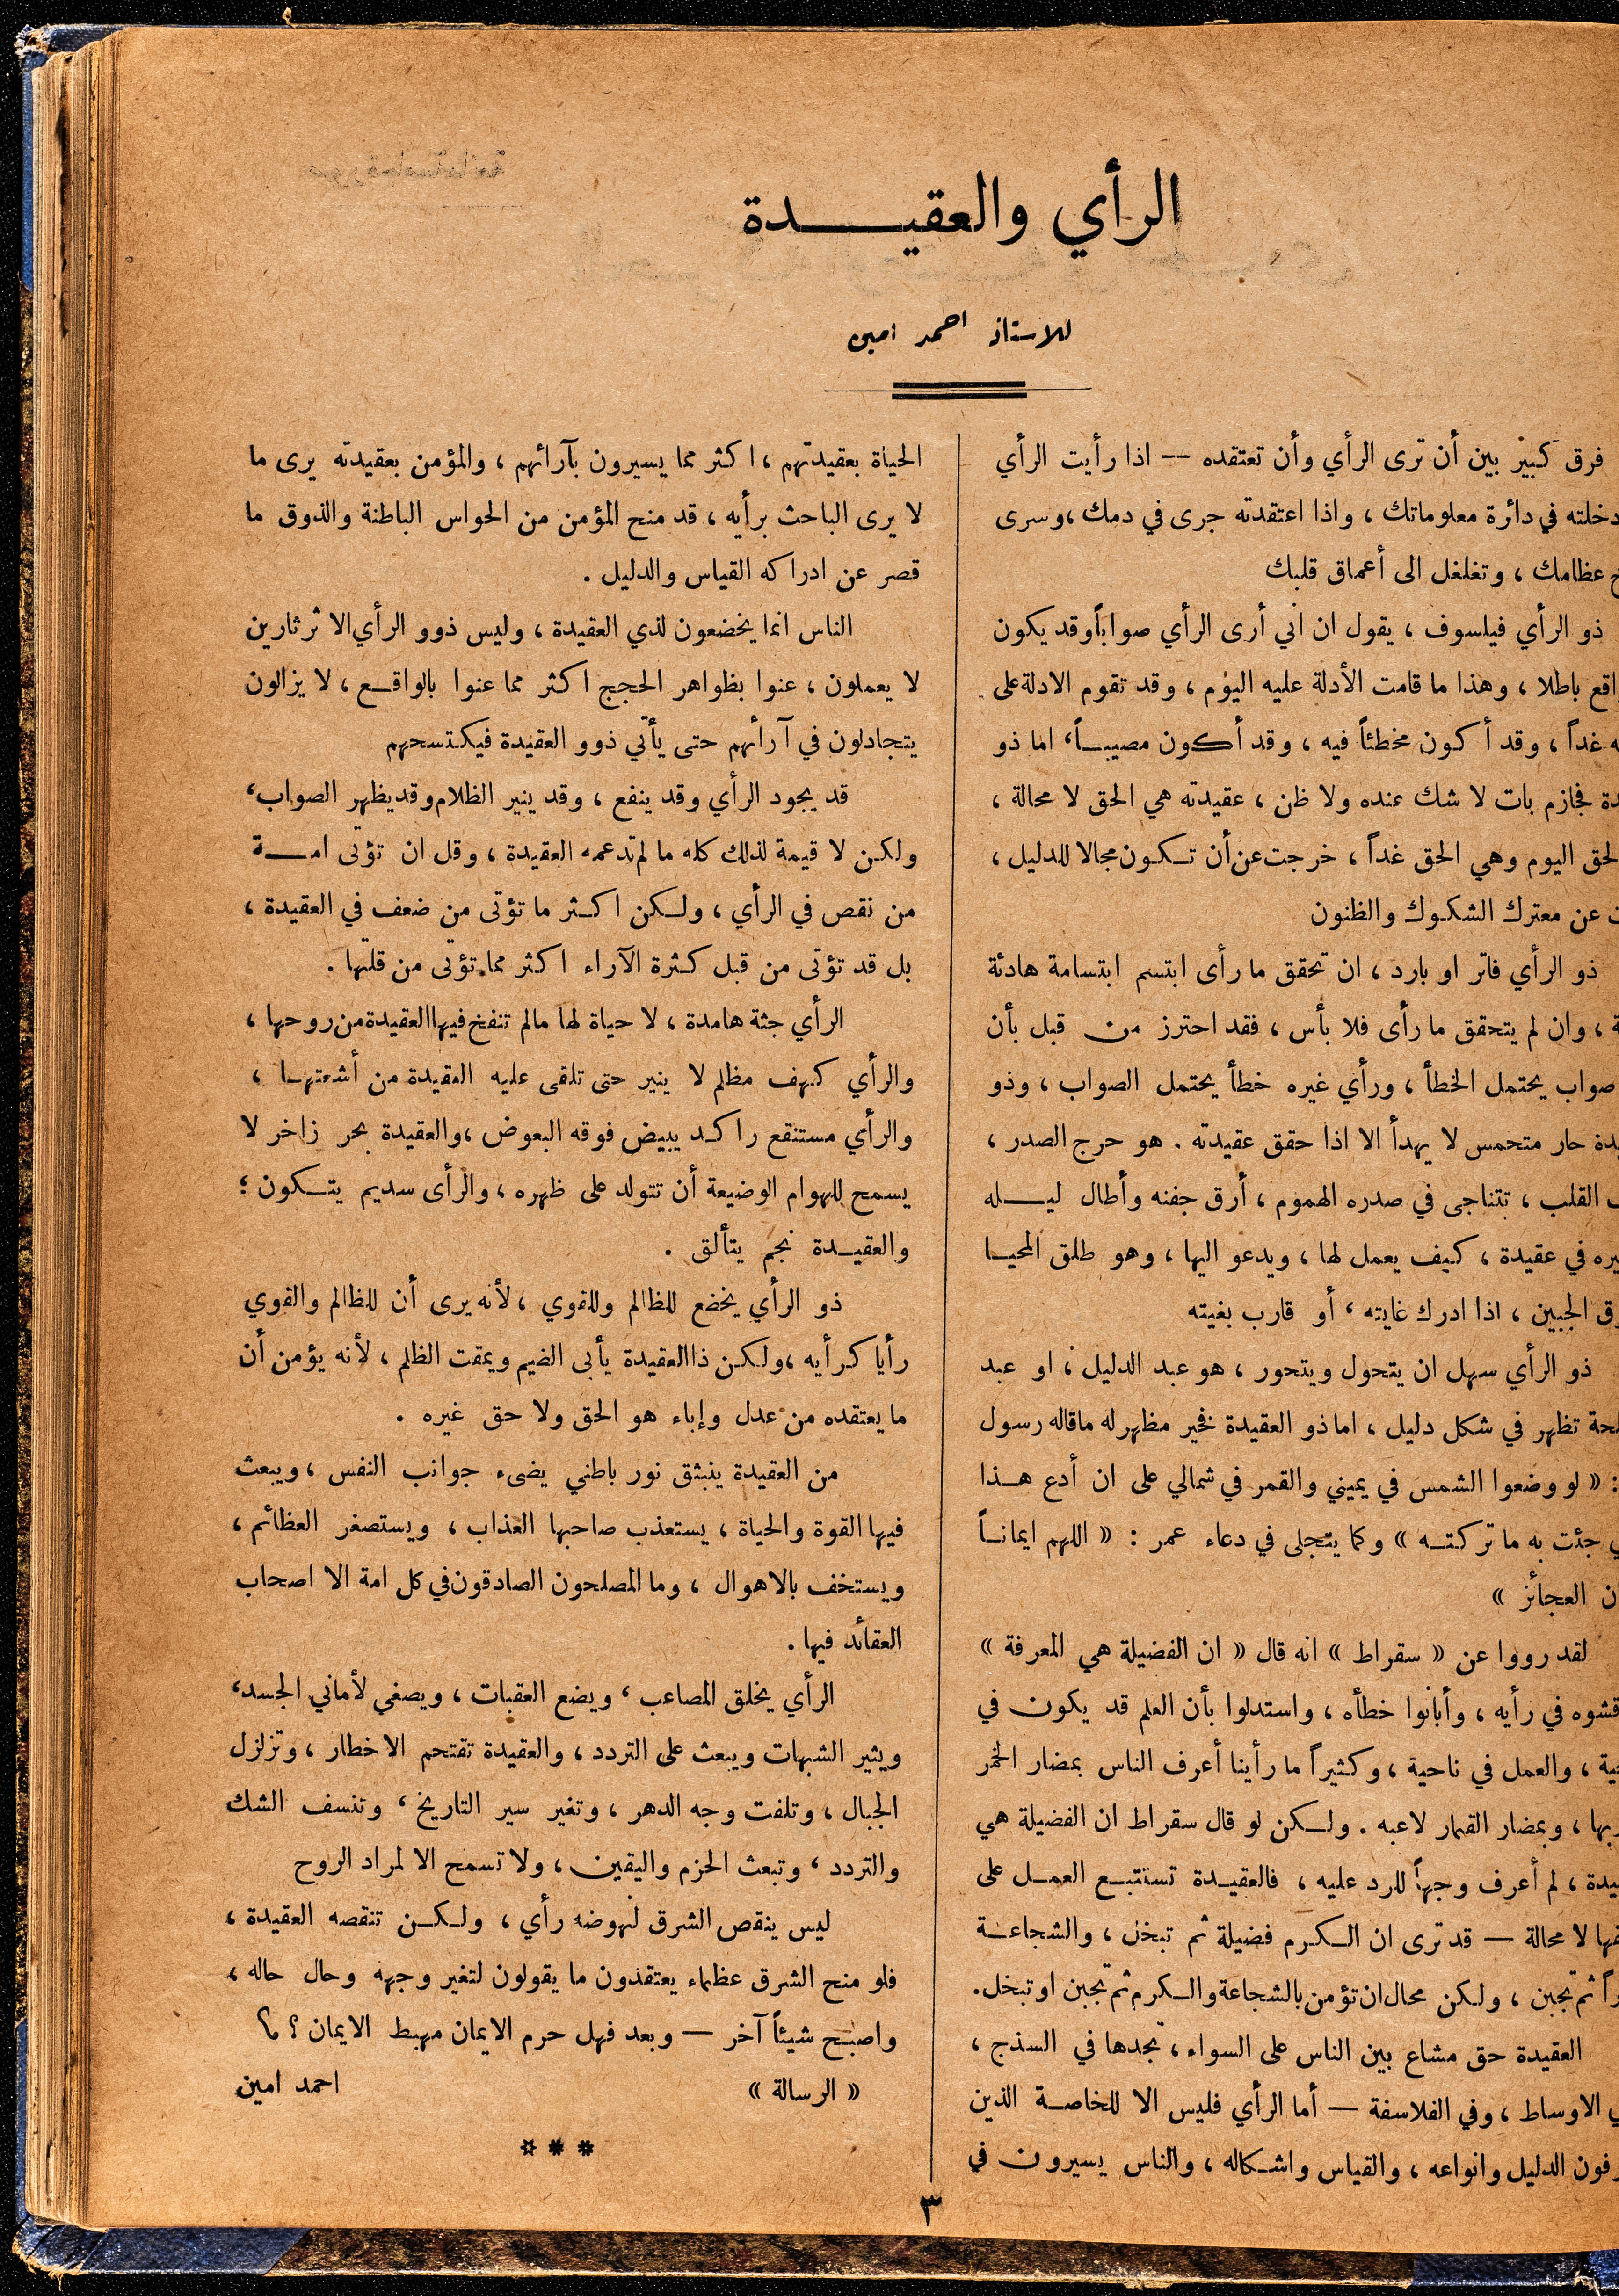 الرأي والعقيـــــدة
للاستاذ احمد امين
فرق كبير بين أن ترى الرأي وأن تعتقده -- اذا رأيت الرأي
دخلته في دائرة معلوماتك ، واذا اعتقدته جرى في دمك ، وسرى
عظامك ، وتغلغل الى أعماق قلبك
ذو الرأي فيلسوف ، يقول ان اني أرى الرأي صواباً وقد يكون
باطلا ، وهذا ما قامت الأدلة عليه اليوم ، وقد تقوم الادلة على
غداً ، وقد أكون مخطئاً فيه ، وقد أكون مصيبـاً ، اما ذو
فجازم بات لا شك عنده ولا ظن ، عقيدته هي الحق لا محالة ،
اليوم وهي الحق غداً ، خرجت عن أن تكون مجالا للدليل ،
عن معترك الشكوك والظنون
ذو الرأي فاتر او بارد ، ان تحقق ما رأى ابتسم ابتسامة هادئة
، وان لم يتحقق ما رأى فلا بأس ، فقد احترز من قبل بأن
صواب يحتمل الخطأ ، ورأي غيره خطأ يحتمل الصواب ، وذو
حار متحمس لا يهدأ الا اذا حقق عقيدته . هو حرج الصدر ،
القلب ، تتناجى في صدره الهموم ، أرق جفنه وأطال ليـــله
في عقيدة ، كيف يعمل لها ، ويدعو اليها ، وهو طلق المحيـا
الجبين ، اذا ادرك غايته ، أو قارب بغيته
ذو الرأي سهل ان يتحول ويتحور ، هو عبد الدليل ، او عبد
تظهر في شكل دليل ، اما ذو العقيدة فخير مظهر له ما قاله رسول
: « لو وضعوا الشمس في يميني والقمر في شمالي على ان أدع هـذا
جئت به ما تركتـه » وكما يتجلى في دعاء عمر : « اللهم ايمانـاً
العجائز »
لقد رووا عن « سقراط » انه قال « ان الفضيلة هي المعرفة »
في رأيه ، وأبانوا خطأه ، واستدلوا بأن العلم قد يكون في
، والعمل في ناحية ، وكثيراً ما رأينا أعرف الناس بمضار الخمر
، وبمضار القمار لاعبه . ولـكن لو قال سقراط ان الفضيلة هي
، لم أعرف وجهاً للرد عليه ، فالعقيـدة تستتبـع العمـل على
لا محالة — قد ترى ان الـكـرم فضيلة ثم تبخل ، والشجاعـة
ثم تجبن ، ولكن محال ان تؤمن بالشجاعة والـكرم ثم تجبن او تبخل.
العقيدة حق مشاع بين الناس على السواء ، تجدها في السذج ،
الاوساط ، وفي الفلاسفة — أما الرأي فليس الا للخاصـة الذين
الدليل وانواعه ، والقياس واشـكاله ، والناس يسيرون في
الحياة بعقيدتهم ، اكثر مما يسيرون بآرائهم ، والمؤمن بعقيدته يرى ما
لا يرى الباحث برأيه ، قد منح المؤمن من الحواس الباطنة والذوق ما
قصر عن ادراكه القياس والدليل .
الناس انما يخضعون لذي العقيدة ، وليس ذوو الرأي الا ثرثارين
لا يعملون ، عنوا بظواهر الحجج اكثر مما عنوا بالواقـع ، لا يزالون
يتجادلون في آرأئهم حتى يأتي ذوو العقيدة فيكتسحهم
قد يجود الرأي وقد ينفع ، وقد ينير الظلام وقد يظهر الصواب ،
ولكـن لا قيمة لذلك كله ما لم تدعمه العقيدة ، وقل ان تؤتى امـــة
من نقص في الرأي ، ولـكن اكـثر ما تؤتى من ضعف في العقيدة ،
بل قد تؤتى من قبل كـثرة الآراء اكثر مما تؤتى من قلتها .
الرأي جثة هامدة ، لا حياة لها مالم تنفخ فيها العقيدة من روحها ،
والرأي كهف مظلم لا ينير حتى تلقى عليه العقيدة من أشعتهـا ،
والرأي مستنقع راكـد يبيض فوقه البعوض ، والعقيدة بحر زاخر لا
يسمح للهوام الوضيعة أن تتولد على ظهره ، والرأى سديم يتـكون ؛
والعقيـدة نجم يتألق .
ذو الرأي يخضع للظالم وللقوي ، لأنه يرى أن للظالم والقوي
رأيا كرأيه ، ولكـن ذا العقيدة يأبى الضيم ويمقت الظلم ، لأنه يؤمن أن
ما يعتقده من عدل وإباء هو الحق ولا حق غيره .
من العقيدة ينبثق نور باطني يضىء جوانب النفس ، ويبعث
فيها القوة والحياة ، يستعذب صاحبها العذاب ، ويستصغر العظائم ،
ويستخف بالاهوال ، وما المصلحون الصادقون في كل امة الا اصحاب
العقائد فيها .
الرأي يخلق المصاعب ، ويضع العقبات ، ويصغي لأماني الجسد ،
ويثير الشبهات ويبعث على التردد ، والعقيدة تقتحم الاخطار ، وتزلزل
الجبال ، وتلفت وجه الدهر ، وتغير سير التاريخ ، وتنسف الشك
والتردد ، وتبعث الحزم واليقين ، ولا تسمح الا لمراد الروح
ليس ينقص الشرق لنهوضه رأي ، ولـكـن تنقصه العقيدة ،
فلو منح الشرق عظماء يعتقدون ما يقولون لتغير وجهه وحال حاله ،
واصبـح شيئاً آخر — وبعد فهل حرم الايمان مهبط الايمان ؟ ؟
« الرسالة » احمد امين
* * *
٣